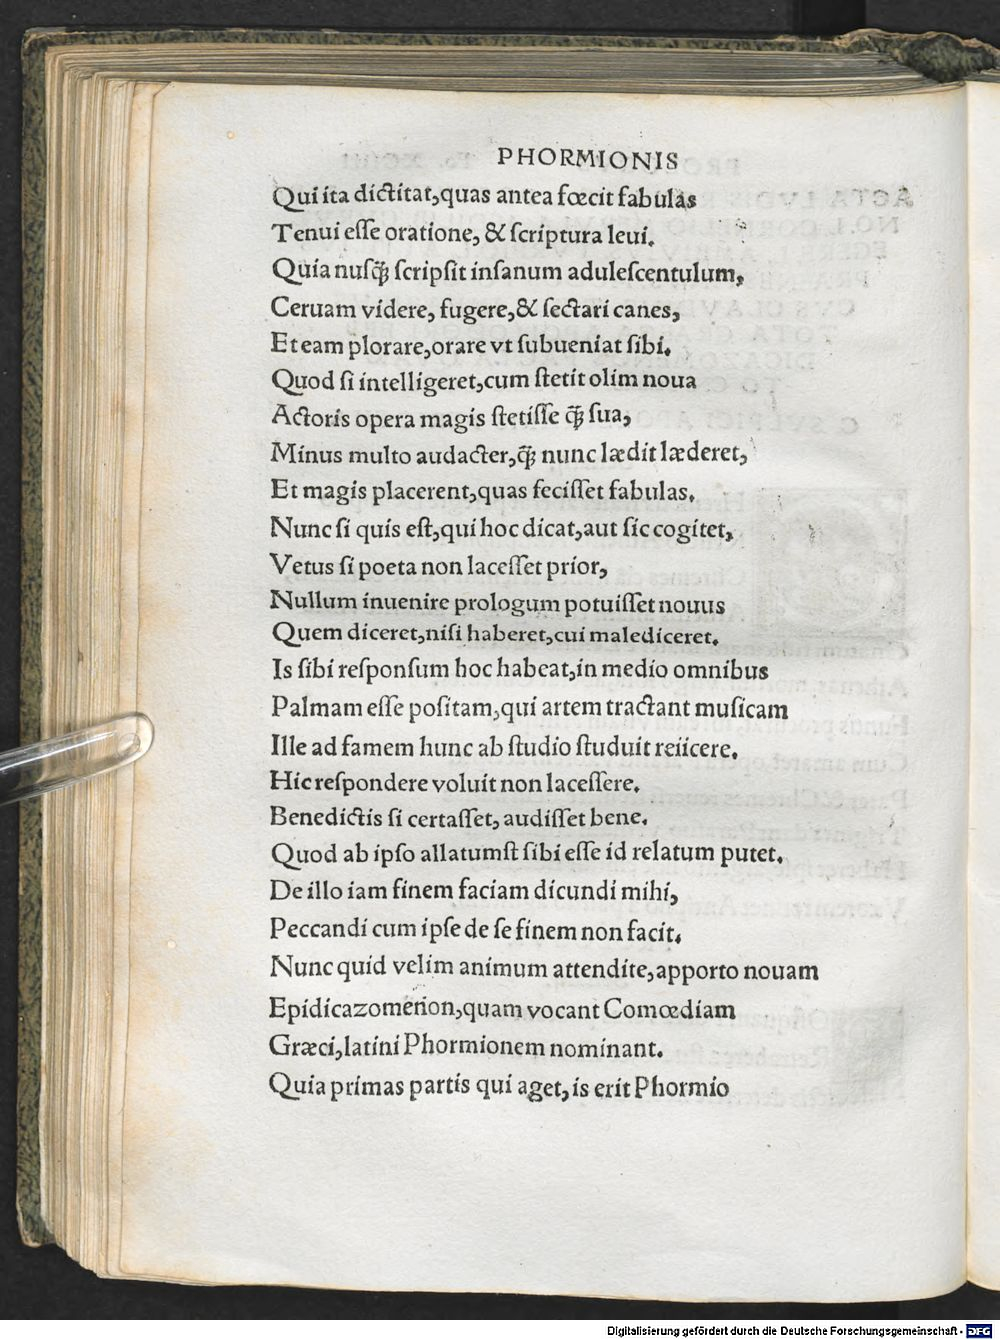 PHORMIONIS
Qui ita dictitat,quas antea fœcit fabulas
Tenui eſſe oratione, & ſcriptura leui.
Quia nuſq̃ ſcripſit inſanum aduleſcentulum,
Ceruam videre, fugere,& ſectari canes,
Et eam plorare,orare vt ſubueniat ſibi.
Quod ſi intelligeret,cum ſtetit olim noua
Actoris opera magis ſtetiſſe q̃ ſua,
Minus multo audacter,q̃ nunc lædit læderet,
Et magis placerent,quas feciſſet fabulas.
Nunc ſi quis eſt,qui hoc dicat,aut ſic cogitet,
Vetus ſi poeta non laceſſet prior,
Nullum inuenire prologum potuiſſet nouus
Quem diceret,niſi haberet,cui malediceret.
Is ſibi reſponſum hoc habeat,in medio omnibus
Palmam eſſe poſitam,qui artem tractant muſicam
Ille ad famem hunc ab ſtudio ſtuduit reiicere.
Hic reſpondere voluit non laceſſere.
Benedictis ſi certaſſet, audiſſet bene.
Quod ab ipſo allatumſt ſibi eſſe id relatum putet.
De illo iam finem faciam dicundi mihi,
Peccandi cum ipſe de ſe finem non facit.
Nunc quid velim animum attendite,apporto nouam
Epidicazomenon,quam vocant Comœdiam
Græci,latini Phormionem nominant.
Quia primas partis qui aget,is erit Phormio
Digitalisierung gefördert durch die Deutsche Forschungsgemeinschaft - DFG